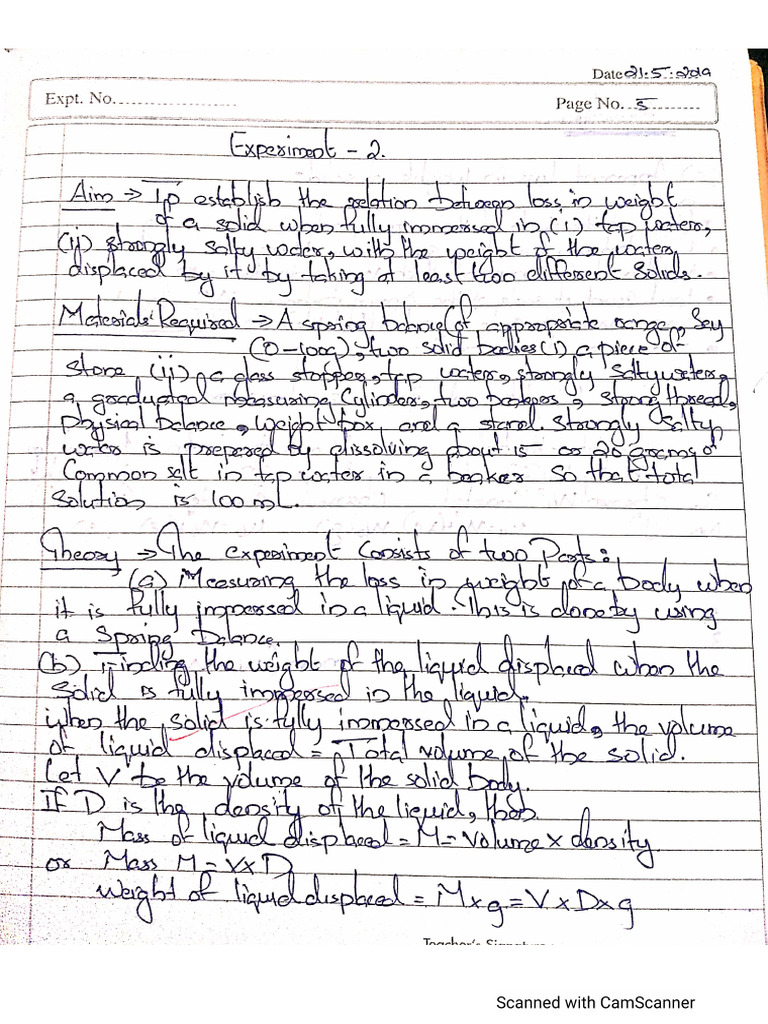 Date 21.5.2019
Expt. No.
Page No. 5
Experiment - 2.
Aim → To establish the relation between loss in weight
of a solid when fully immersed in (i) tap water,
(ii) strongly salty water, with the weight of the water
displaced by it by taking at least two different Solids.
Materials Required → A spring balance (of appropriate range, Say
(0-100g), two solid bodies (i) a piece of
Stone (ii) a glass stopper, tap water, strongly salty water,
a graduated measuring Cylinder, two beakers, strong thread,
physical balance, weight box, and a stand. Strongly Salty
water is prepared by dissolving about 15 or 20 grams of
Common salt in tap water in a beaker so that total
Solution is 100 mL.
Theory → The experiment Consists of two Parts:
(a) Measuring the loss in weight of a body when
it is fully immersed in a liquid. This is done by using
a Spring balance.
(b) Finding the weight of the liquid displaced when the
Solid is fully immersed in the liquid.
when the solid is fully immersed in a liquid, the volume
of liquid displaced = Total volume of the solid.
Let V be the volume of the solid body.
If D is the density of the liquid, then
Mass of liquid displaced = M = Volume x density
or Mass M = V x D
Weight of liquid displaced = M x g = V x D x g
Teacher's Signature
Scanned with CamScanner